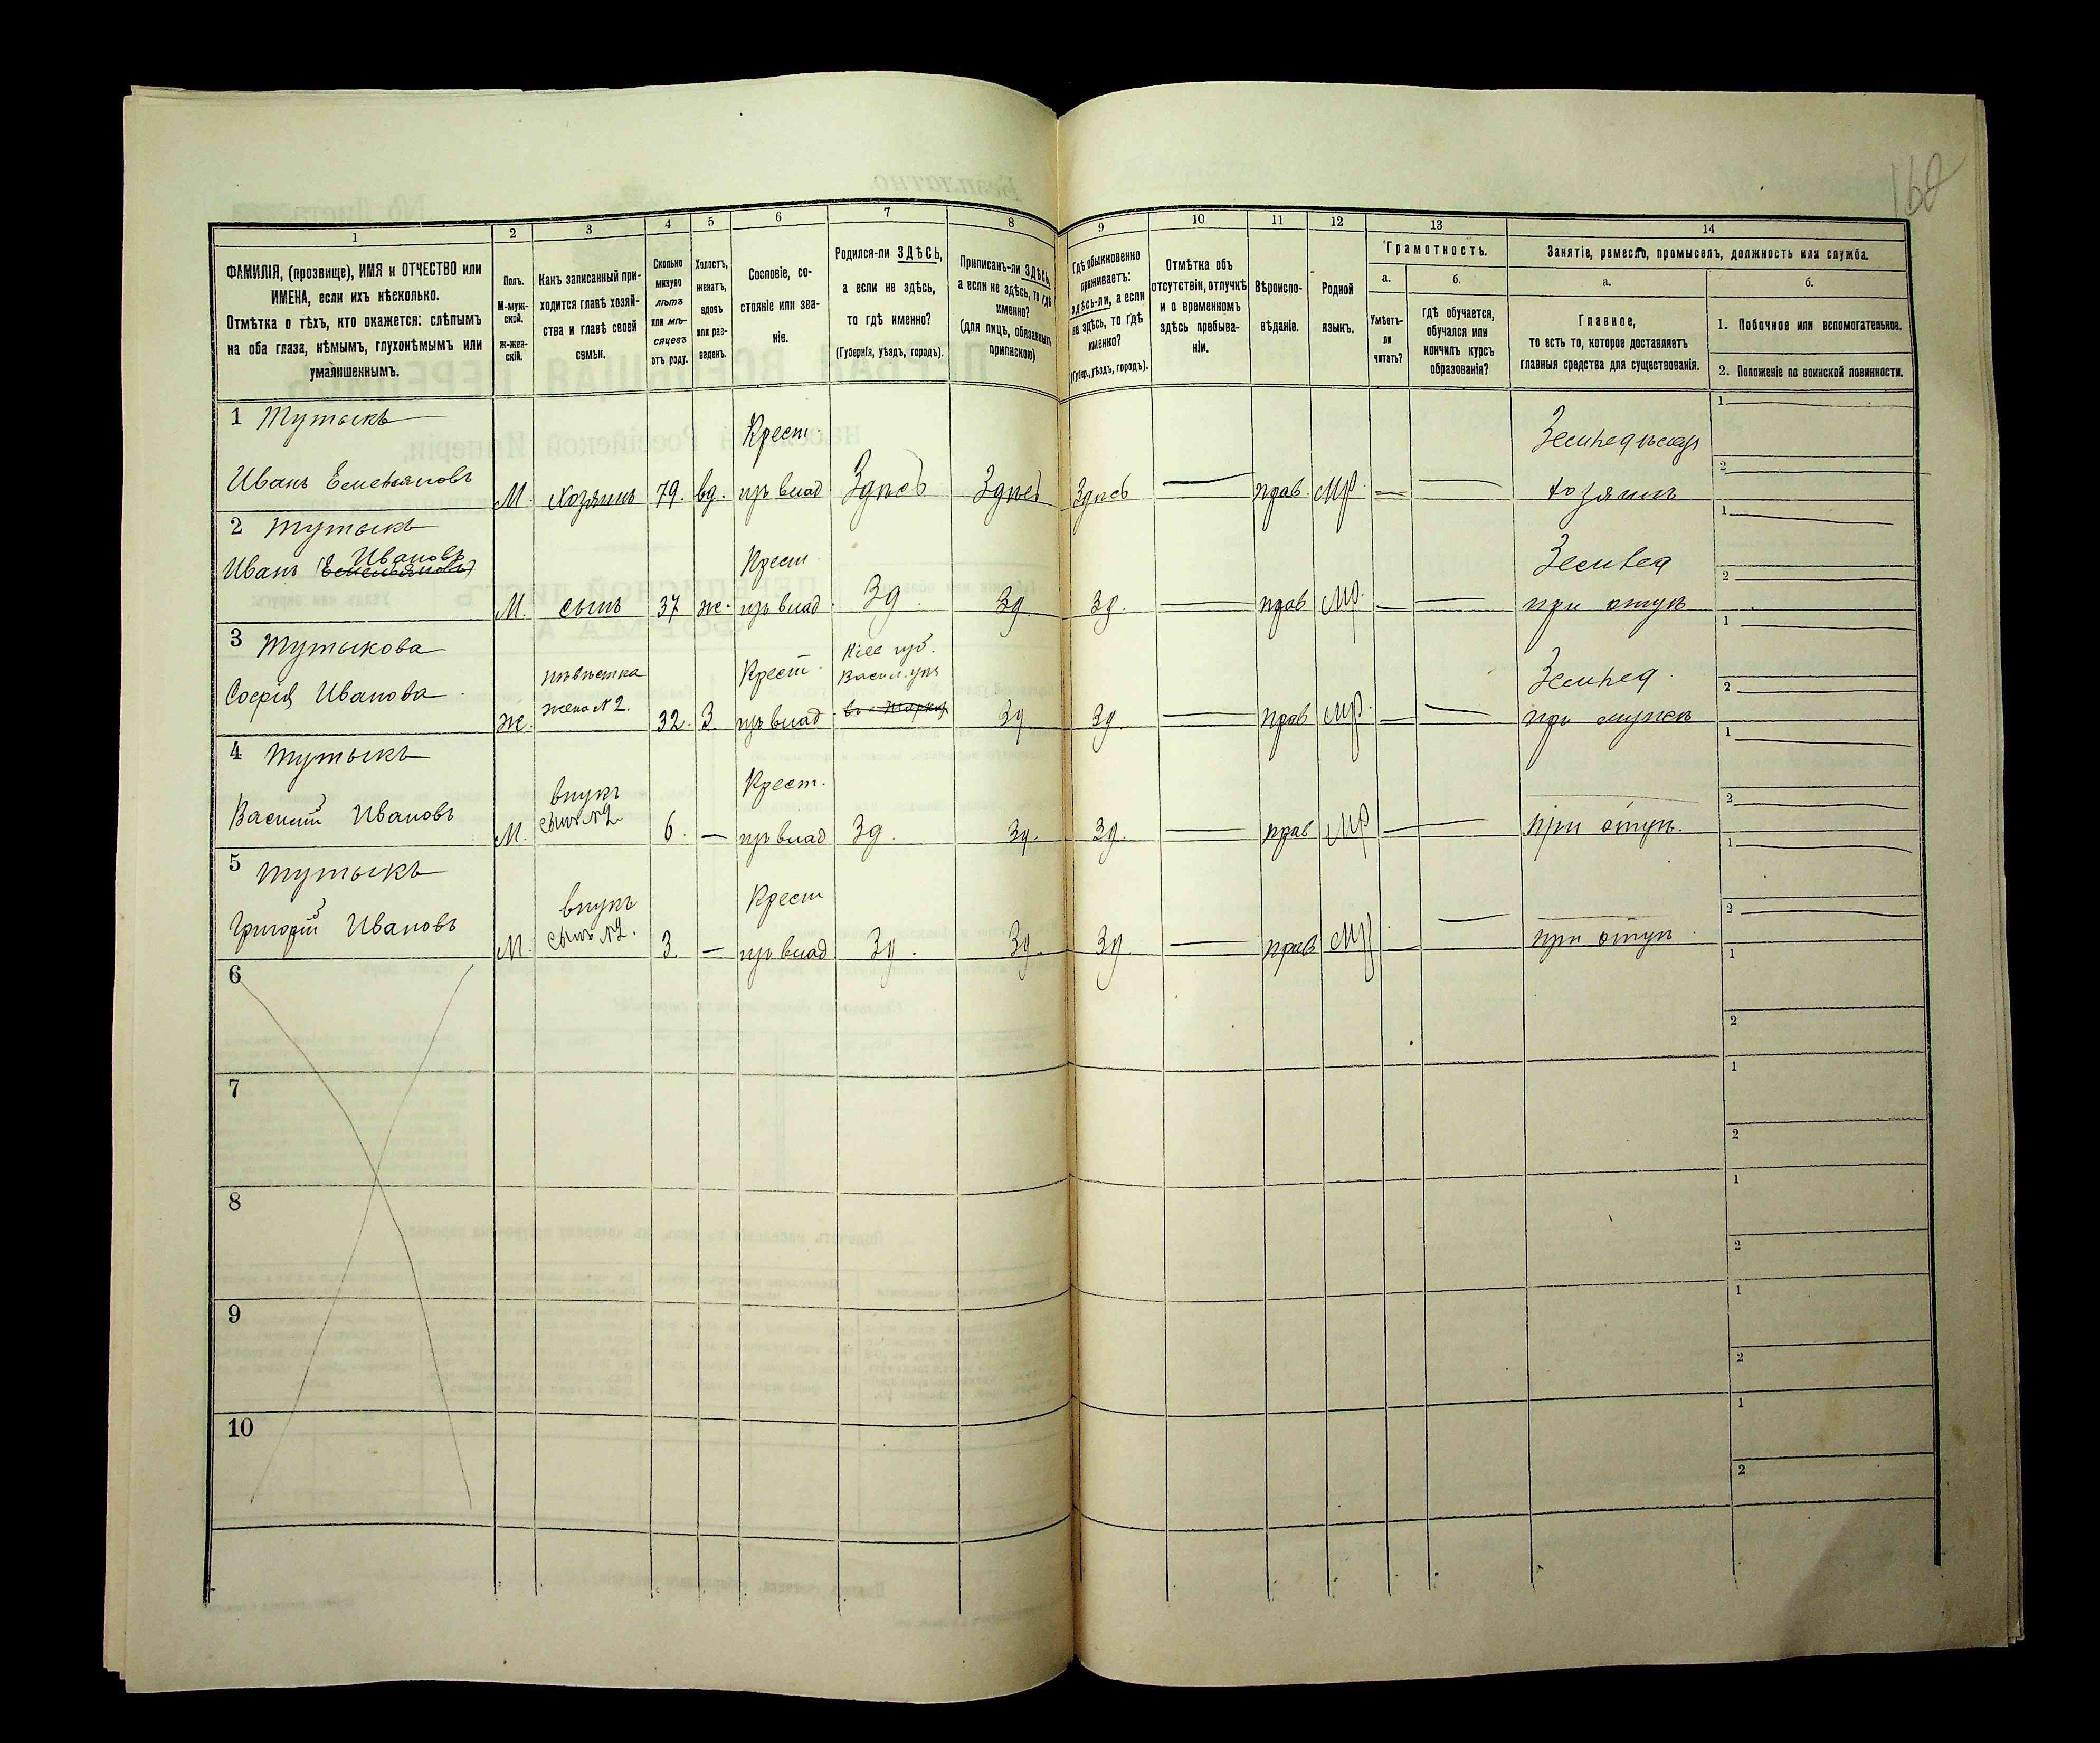 168
1
2
3
4
5
6
7
8
9
10
11
12
13
14
ФАМИЛІЯ, (прозвище), ИМЯ и ОТЧЕСТВО или
ИМЕНА, если ихъ нѣсколько.
Отмѣтка о тѣхъ, кто окажется: слѣпымъ
на оба глаза, нѣмымъ, глухонѣмымъ или
умалишеннымъ.
Полъ.
М-муж-
ской.
Ж-жен-
скій.
Какъ записанный при-
ходится главѣ хозяй-
ства и главѣ своей
семьи.
Сколько
минуло
лѣтъ
или мѣ-
сяцевъ
отъ роду.
Холостъ,
женатъ,
вдовъ
или раз-
веденъ.
Сословіе, со-
стояніе или зва-
ніе.
Родился-ли ЗДѢСЬ,
а если не здѣсь,
то гдѣ именно?
(Губернія, уѣздъ, городъ).
Приписанъ-ли ЗДѢСЬ,
а если не здѣсь, то гдѣ
именно?
(для лицъ, обязанныхъ
припискою)
Гдѣ обыкновенно
проживаетъ:
здѣсь-ли, а если
не здѣсь, то гдѣ
именно?
(Губер., уѣздъ, городъ).
Отмѣтка объ
отсутствіи, отлучкѣ
и о временномъ
здѣсь пребыва-
ніи.
Вѣроиспо-
вѣданіе.
Родной
языкъ.
Грамотность.
а.
Умѣетъ-
ли
читать?
б.
гдѣ обучается,
обучался или
кончилъ курсъ
образованія?
Занятіе, ремесло, промыселъ, должность или служба.
а.
Главное,
то есть то, которое доставляетъ
главныя средства для существованія.
б.
1. Побочное или вспомогательное.
2. Положеніе по воинской повинности.
1 Тутыкъ
Иванъ Емельяновъ
М. Хозяинъ 79. вд.
Крест.
пр влад
Здѣсь Здѣсь Здѣсь — прав. мр. — —
Земледѣлецъ
хозяинъ
1 —
2 —
2 Тутыкъ
Ивановъ
Иванъ Емельяновъ
М. сынъ 37 ж.
Крест
пр влад.
Зд. Зд. Зд. — прав мр. — —
Земвед
при отцѣ
1 —
2 —
3 Тутыкова
Софія Иванова
Ж.
невѣстка
жена № 2.
32. З.
Крест.
пр влад
Кіев губ.
Васил. уѣз
Зд Зд — прав мр. — —
Землед.
при мужѣ
1 —
2 —
4 Тутыкъ
Василій Ивановъ
М.
внукъ
сынъ №2
6. —
Крест.
пр влад
Зд. Зд. Зд. — прав мр — —
при отцѣ.
1 —
2 —
5 Тутыкъ
Григорій Ивановъ
М.
внукъ
сынъ №2.
3. —
Крест
пр влад
Зд. Зд. Зд. — прав мр — —
при отцѣ.
1 —
2 —
6
1
2
7
1
2
8
1
2
9
1
2
10
1
2